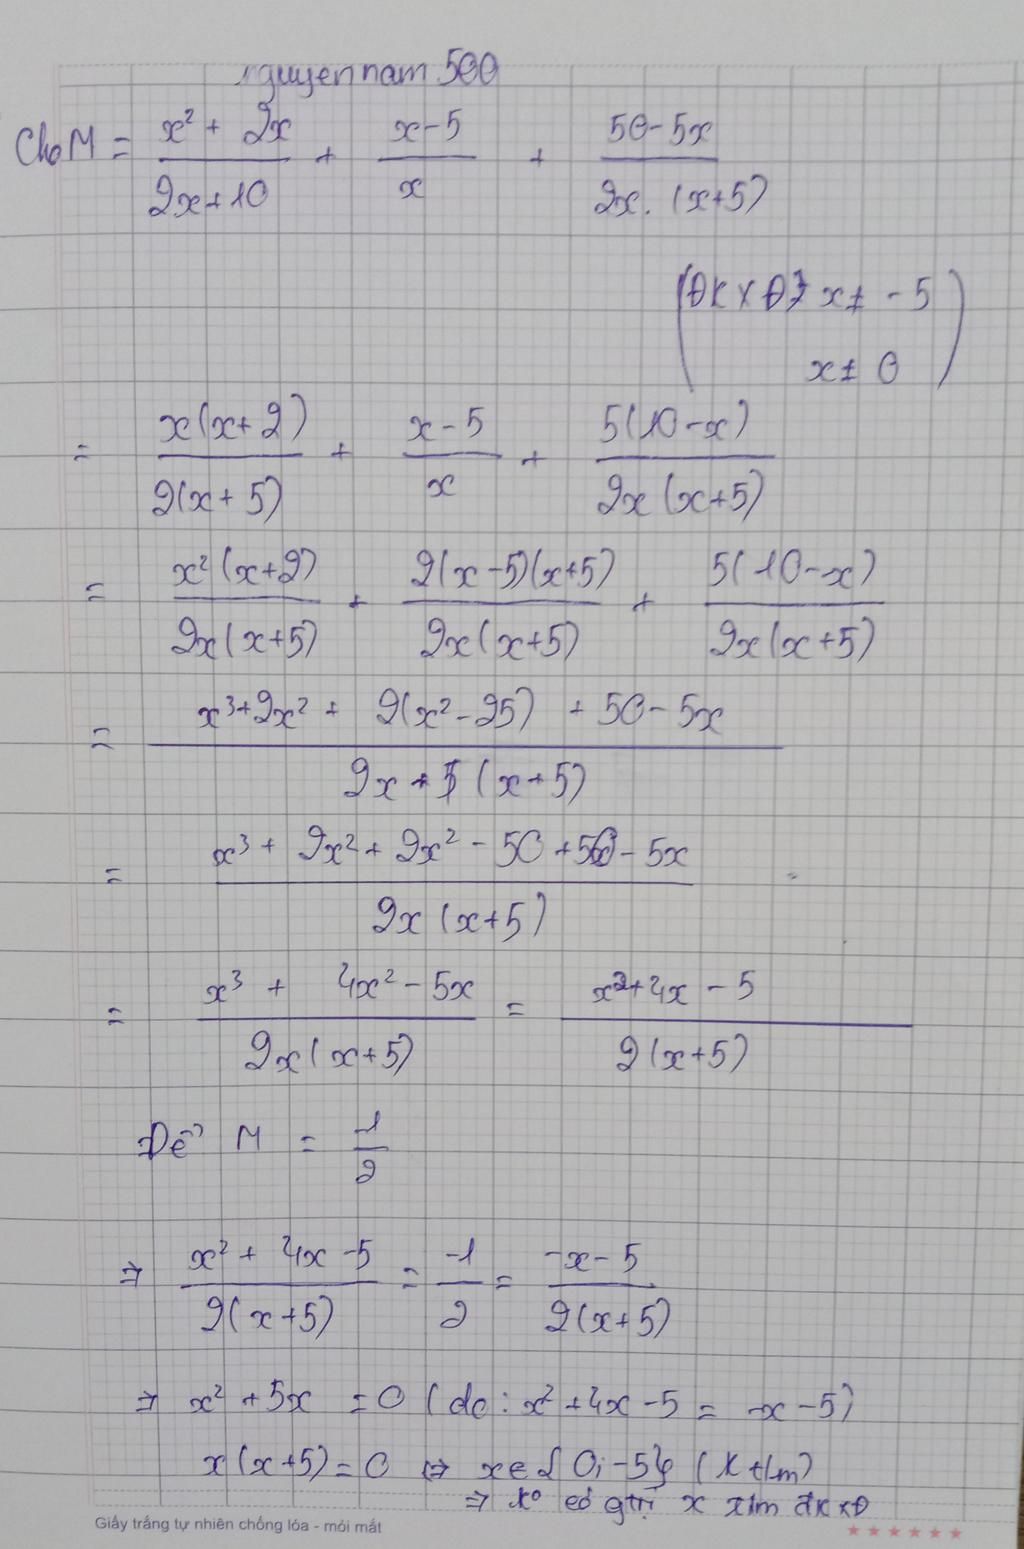 nguyennam 500
Cho M = (x² + 2x)/(2x+10) + (x-5)/x + (50-5x)/(2x.(x+5))
(ĐKXĐ: x ≠ -5
x ≠ 0)
= x(x+2)/(2(x+5)) + (x-5)/x + 5(10-x)/(2x(x+5))
= x²(x+2)/(2x(x+5)) + 2(x-5)(x+5)/(2x(x+5)) + 5(10-x)/(2x(x+5))
= (x³+2x² + 2(x²-25) + 50-5x)/(2x (x+5))
= (x³ + 2x² + 2x² - 50 + 50 - 5x)/(2x(x+5))
= (x³ + 4x² - 5x)/(2x(x+5)) = (x²+4x - 5)/(2(x+5))
Để M = -1/2
⇒ (x² + 4x - 5)/(2(x+5)) = -1/2 = (-x-5)/(2(x+5))
⇒ x² + 5x = 0 (do: x² + 4x - 5 = -x-5)
x(x+5) = 0 ⇔ x∈{0;-5} (K t/m)
⇒ K° có gtrị x t/m đkxđ
Giấy trắng tự nhiên chống lóa - mỏi mắt